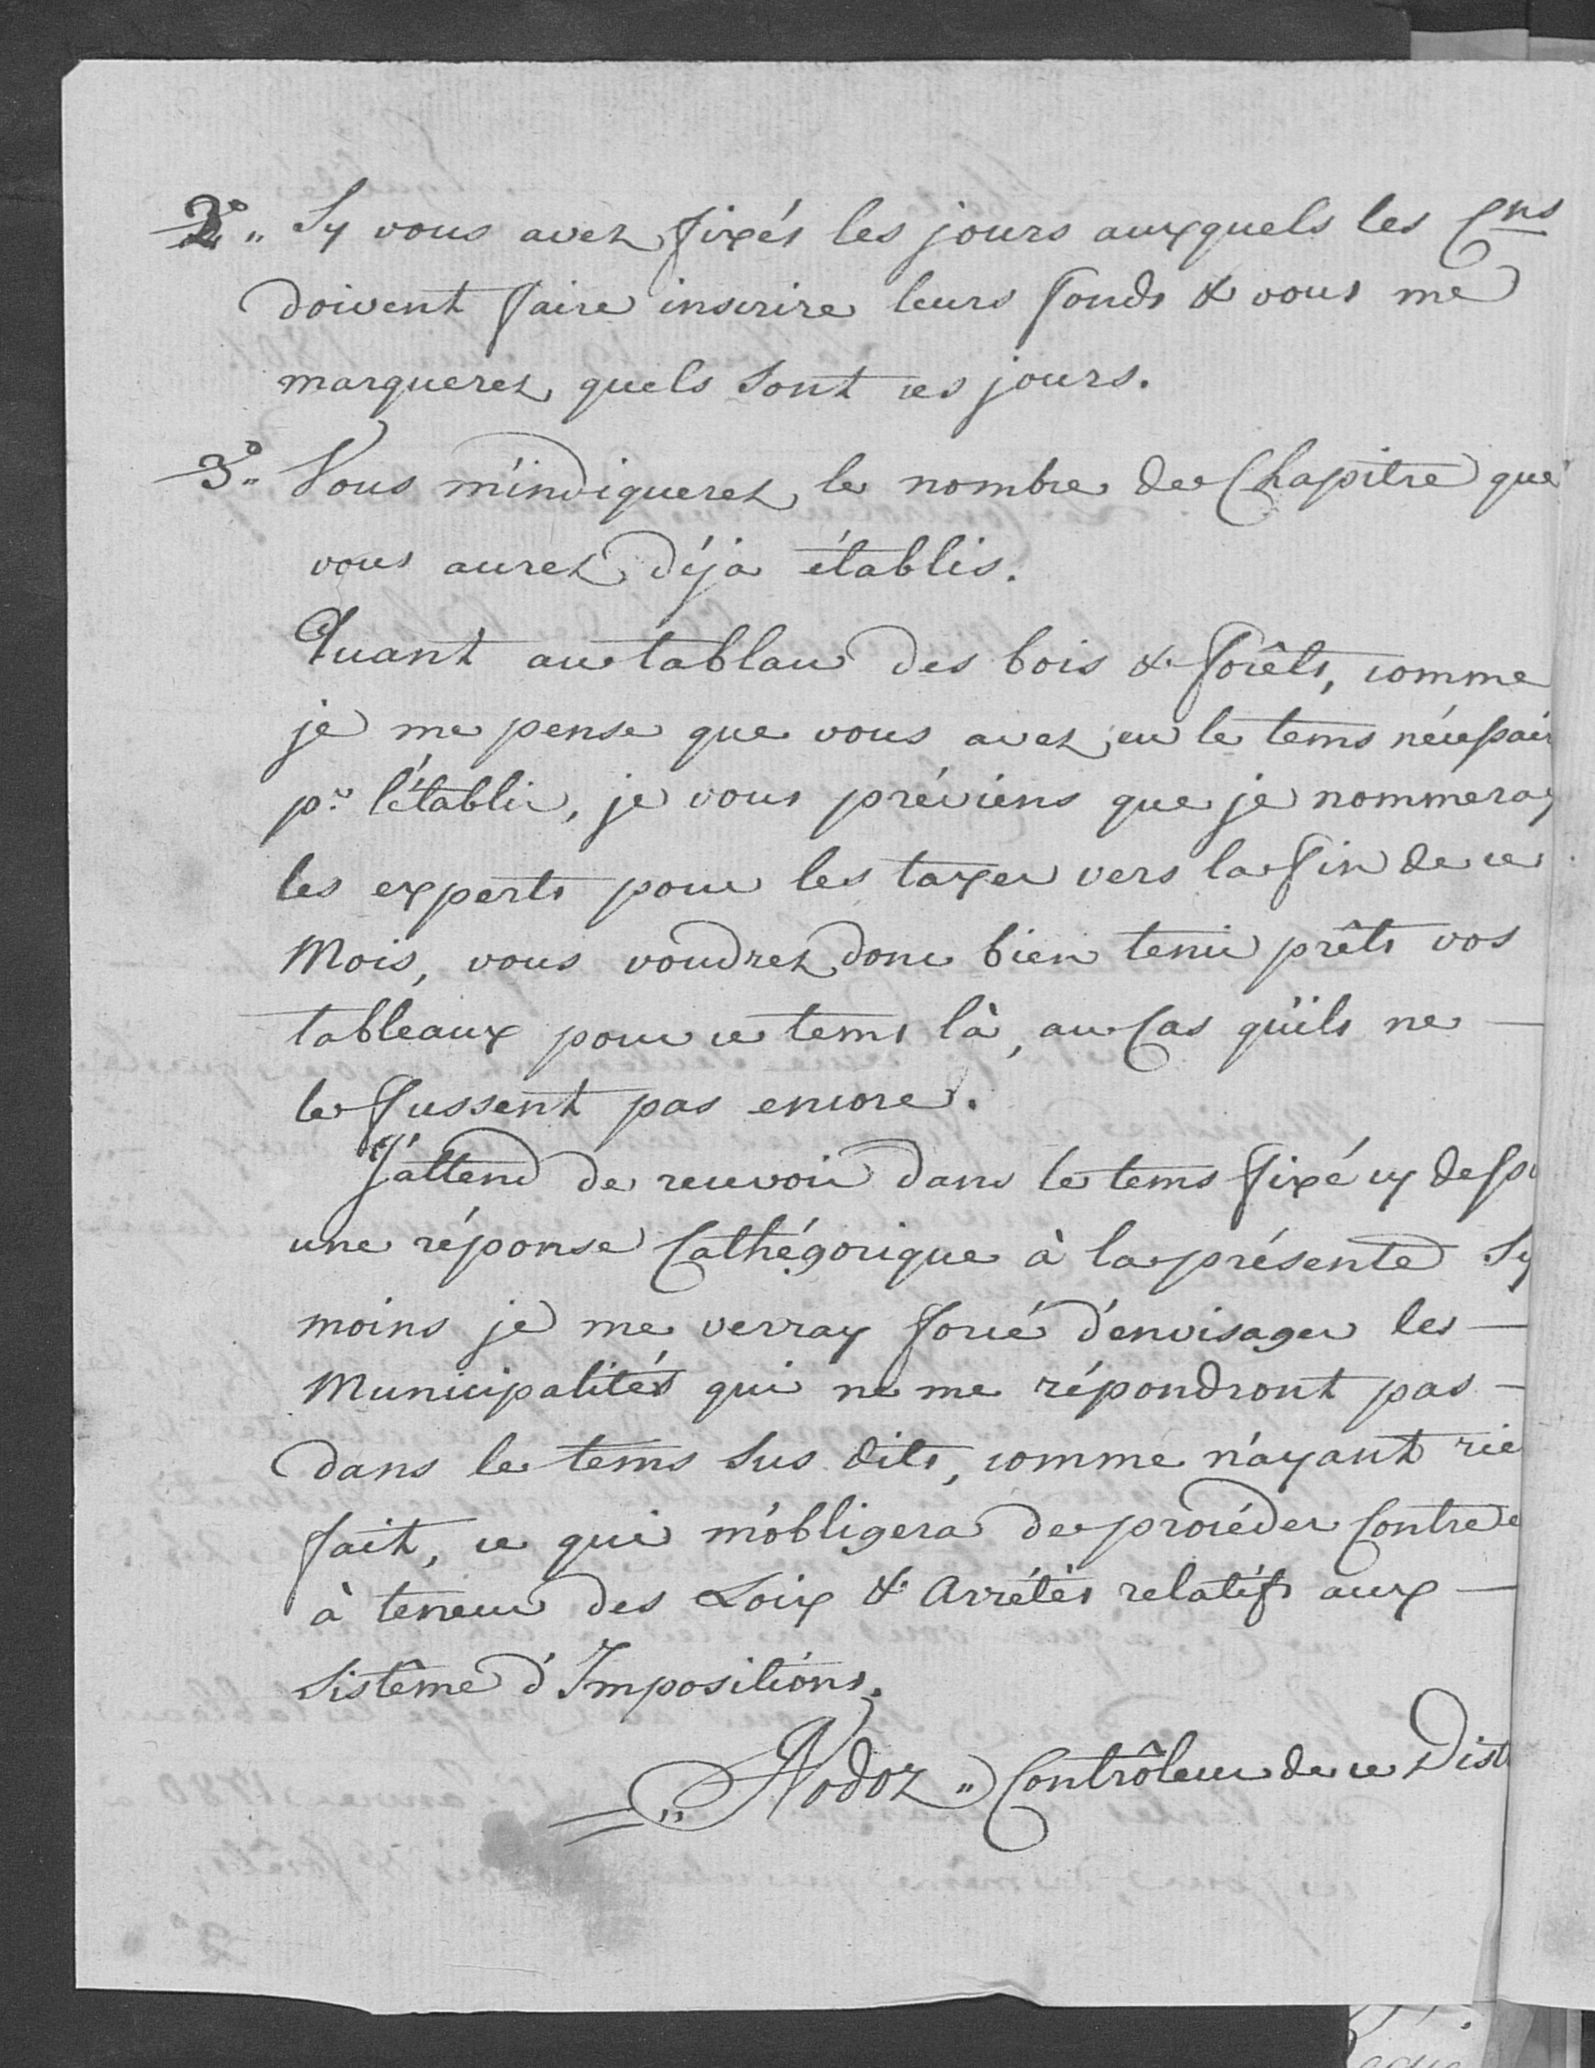 2°„ Sy vous avez fixés les jours auxquels les Cns
doivent faire inscrire leurs fonds & vous me
marquerez quels sont ces jours.
3°„ Vous m'indiquerez le nombre de Chapitre que
vous aurez déja établis.
Quant au tablau des bois & forêts, comme
je me pense que vous avez eu le tems nécessair
pr l'établir, je vous préviens que je nommeray
les experts pour les taxer vers la fin de ce
Mois, vous voudrez donc bien tenir prêts vos
tableaux pour ce tems là, au Cas qu'ils ne —
le fussent pas encore.
J'attend de recevoir dans le tems fixé cy dessu
une réponse Cathégorique à la présente Sy
moins je me verray forcé d'envisager les —
Municipalités qui ne me répondront pas —
dans le tems sus dits, comme n'ayant rie
fait, ce qui m'obligera de procéder Contre e
à teneur des Loix & Arrétés relatifs aux —
Sistême d'Impositions.
„ Nodoz „ Contrôleur de ce Dist